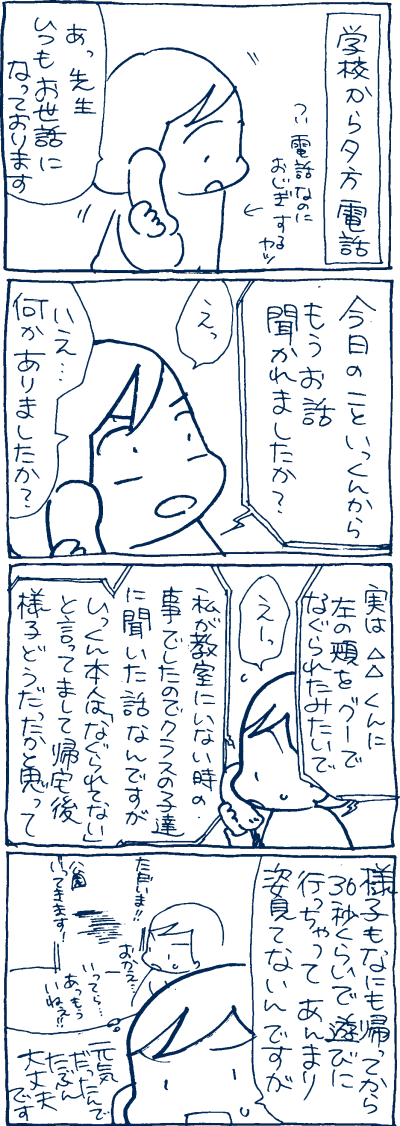 学校から夕方電話
つい電話なのに
おじぎする
ヤツ
あっ先生
いつもお世話に
なっております
今日のこといっくんから
もうお話
聞かれましたか?
えっ
いえ…
何かありましたか?
実は△△くんに
左の頬をグーで
なぐられたみたいで
えーっ
私が教室にいない時の
事でしたのでクラスの子達
に聞いた話なんですが
いっくん本人は「なぐられてない」
と言ってまして帰宅後
様子どうだったかと思って
様子もなにも帰ってから
36秒くらいで遊びに
行っちゃってあんまり
姿見てないんですが
ただいま!!
おかえ…
公園
いってきます!
いってら…
あっもう
いねぇ!!
元気
だったんで
たぶん
大丈夫
です